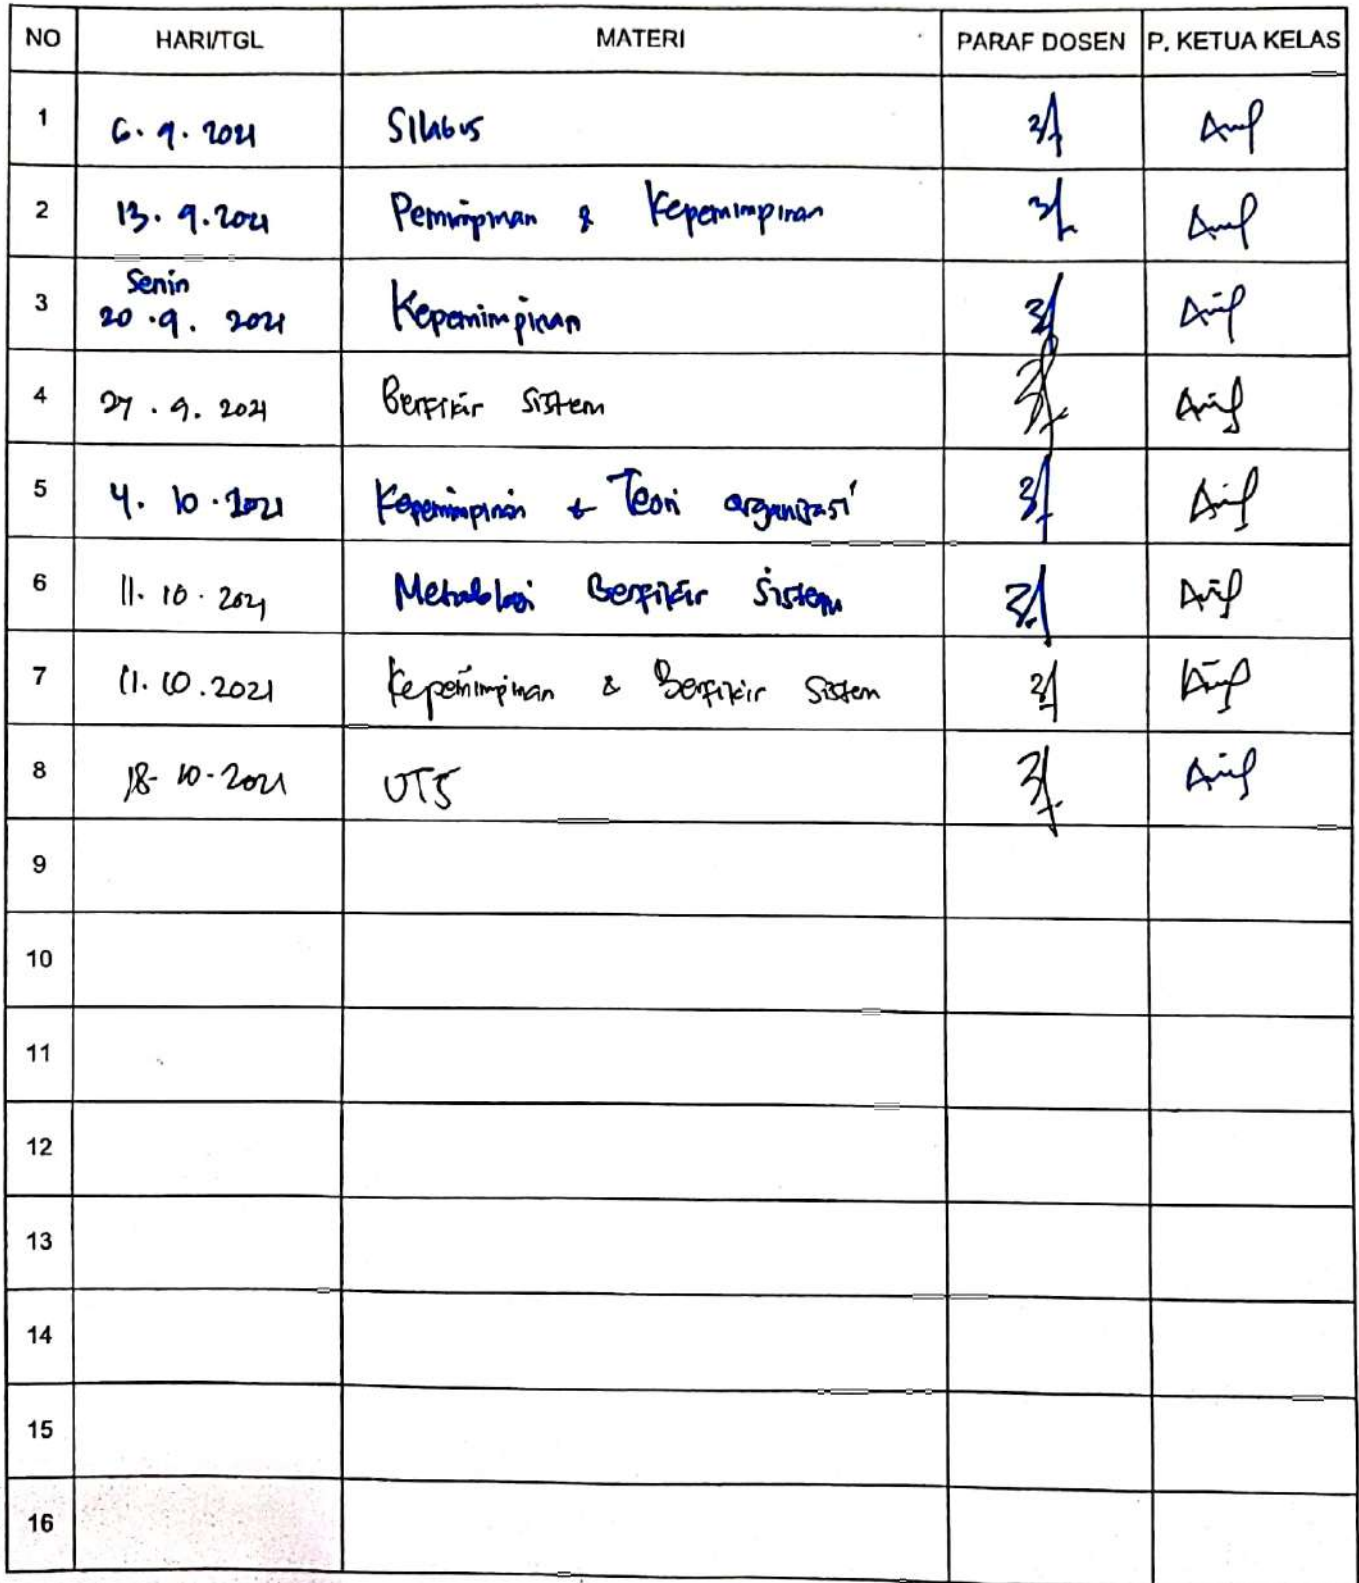 NO HARI/TGL MATERI PARAF DOSEN P. KETUA KELAS
1 6. 9. 2021 Silabus
2 13. 9. 2021 Pemimpinan & Kepemimpinan
3 Senin
20. 9. 2021 Kepemimpinan
4 27. 9. 2021 Berfikir Sistem
5 4. 10. 2021 Kepemimpinan & Teori organisasi
6 11. 10. 2021 Berfikir Sistem
7 11. 10. 2021 Kepemimpinan & Berfikir Sistem
8 18-10-2021 UTS
9
10
11
12
13
14
15
16